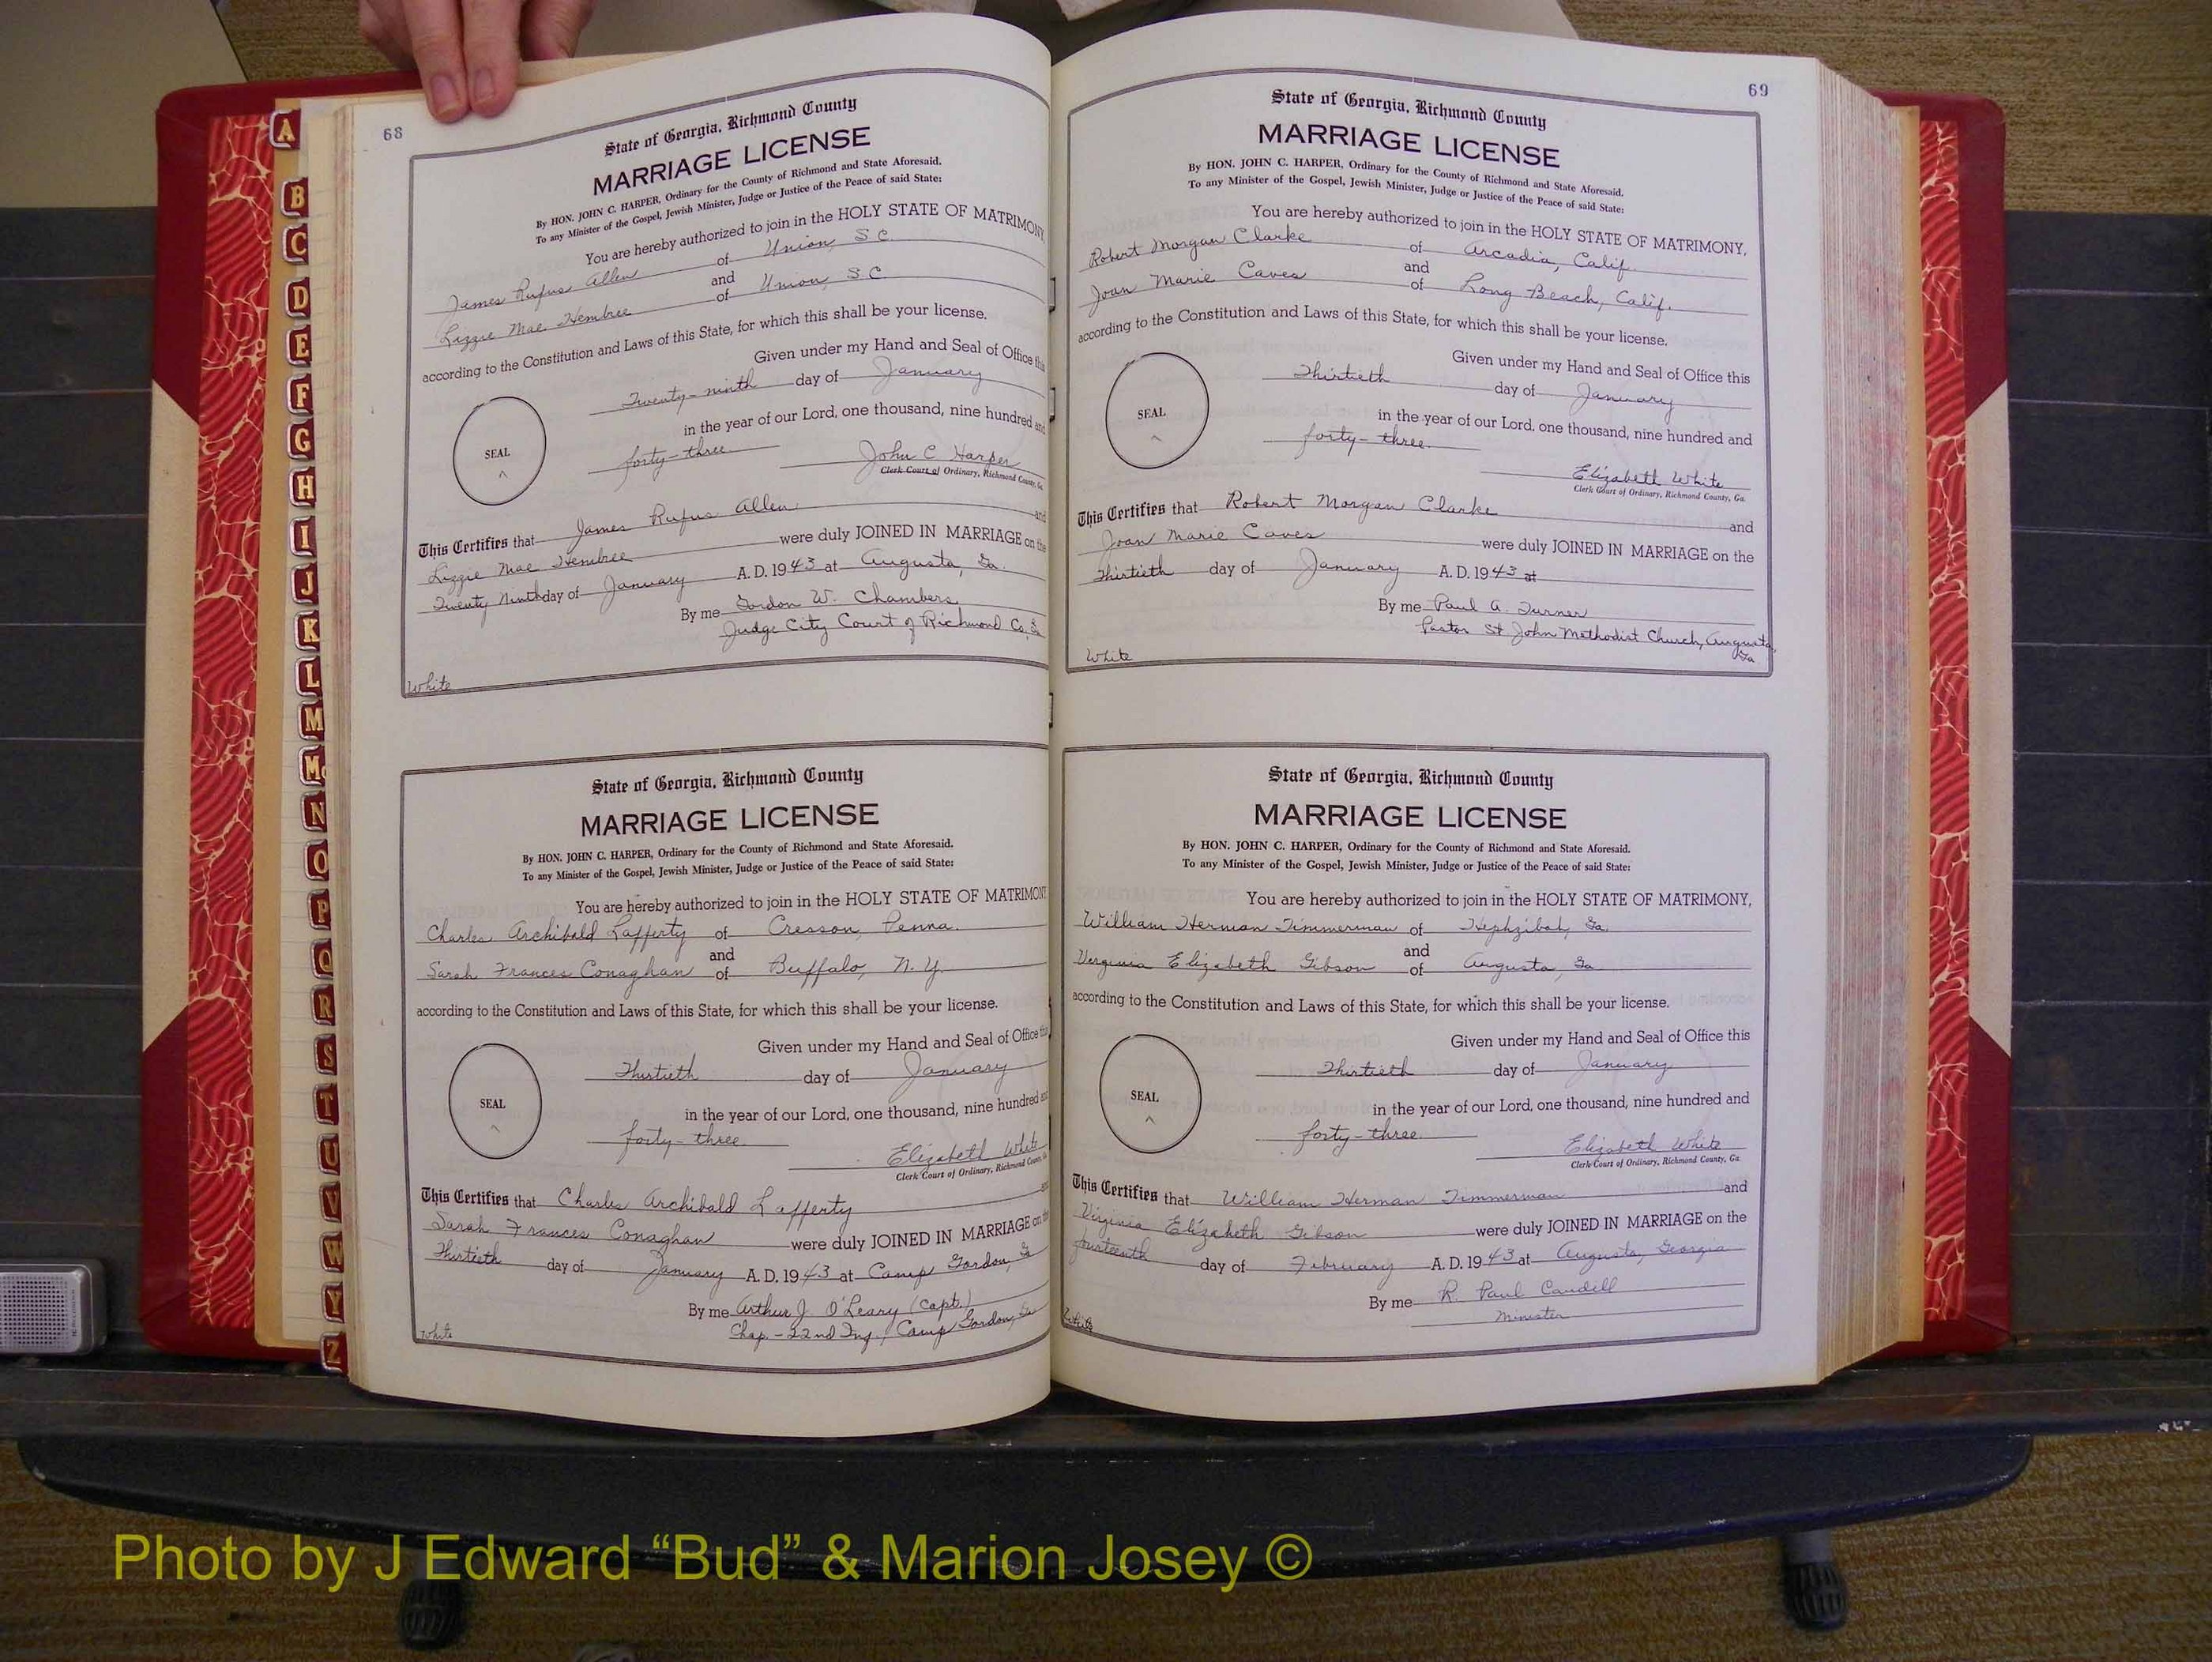 68
State of Georgia, Richmond County
MARRIAGE LICENSE
By HON. JOHN C. HARPER, Ordinary for the County of Richmond and State Aforesaid.
To any Minister of the Gospel, Jewish Minister, Judge or Justice of the Peace of said State:
You are hereby authorized to join in the HOLY STATE OF MATRIMONY,
James Rufus Allen of Union, S C
and
Lizzie Mae Hembree of Union, S C
according to the Constitution and Laws of this State, for which this shall be your license.
Given under my Hand and Seal of Office this
Twenty-ninth day of January
in the year of our Lord, one thousand, nine hundred and
SEAL
forty-three
John C Harper
Clerk Court of Ordinary, Richmond County, Ga.
This Certifies that James Rufus Allen and
Lizzie Mae Hembree were duly JOINED IN MARRIAGE on the
Twenty Ninth day of January A. D. 1943 at Augusta, Ga.
By me Gordon W. Chambers
Judge City Court of Richmond Co, Ga
White
State of Georgia, Richmond County
MARRIAGE LICENSE
By HON. JOHN C. HARPER, Ordinary for the County of Richmond and State Aforesaid.
To any Minister of the Gospel, Jewish Minister, Judge or Justice of the Peace of said State:
You are hereby authorized to join in the HOLY STATE OF MATRIMONY
Charles Archibald Lafferty of Cresson, Penna.
and
Sarah Frances Conaghan of Buffalo, N. Y.
according to the Constitution and Laws of this State, for which this shall be your license.
Given under my Hand and Seal of Office this
Thirtieth day of January
SEAL
in the year of our Lord, one thousand, nine hundred and
forty-three
Elizabeth White
Clerk Court of Ordinary, Richmond County, Ga
This Certifies that Charles Archibald Lafferty and
Sarah Frances Conaghan were duly JOINED IN MARRIAGE on the
Thirtieth day of January A. D. 1943 at Camp Gordon, Ga
By me Arthur J. O'Leary (Capt.)
Chap.-22nd Inf., Camp Gordon, Ga
White
69
State of Georgia, Richmond County
MARRIAGE LICENSE
By HON. JOHN C. HARPER, Ordinary for the County of Richmond and State Aforesaid.
To any Minister of the Gospel, Jewish Minister, Judge or Justice of the Peace of said State:
You are hereby authorized to join in the HOLY STATE OF MATRIMONY,
Robert Morgan Clarke of Arcadia, Calif.
and
Joan Marie Caves of Long Beach, Calif.
according to the Constitution and Laws of this State, for which this shall be your license.
Given under my Hand and Seal of Office this
Thirtieth day of January
SEAL
in the year of our Lord, one thousand, nine hundred and
forty-three.
Elizabeth White
Clerk Court of Ordinary, Richmond County, Ga.
This Certifies that Robert Morgan Clarke and
Joan Marie Caves were duly JOINED IN MARRIAGE on the
Thirtieth day of January A. D. 1943 at
By me Paul A. Turner
Pastor St John Methodist Church, Augusta,
Ga
White
State of Georgia, Richmond County
MARRIAGE LICENSE
By HON. JOHN C. HARPER, Ordinary for the County of Richmond and State Aforesaid.
To any Minister of the Gospel, Jewish Minister, Judge or Justice of the Peace of said State:
You are hereby authorized to join in the HOLY STATE OF MATRIMONY,
William Herman Timmerman of Hephzibah, Ga.
and
Virginia Elizabeth Gibson of Augusta, Ga
according to the Constitution and Laws of this State, for which this shall be your license.
Given under my Hand and Seal of Office this
Thirtieth day of January
SEAL
in the year of our Lord, one thousand, nine hundred and
forty-three.
Elizabeth White
Clerk Court of Ordinary, Richmond County, Ga
This Certifies that William Herman Timmerman and
Virginia Elizabeth Gibson were duly JOINED IN MARRIAGE on the
fourteenth day of February A. D. 1943 at Augusta, Georgia
By me R. Paul Caudill
Minister
White
A
B
C
D
E
F
G
H
I
J
K
L
M
Mc
N
O
P
Q
R
S
T
U
V
W
Y
Z
Photo by J Edward “Bud” & Marion Josey ©